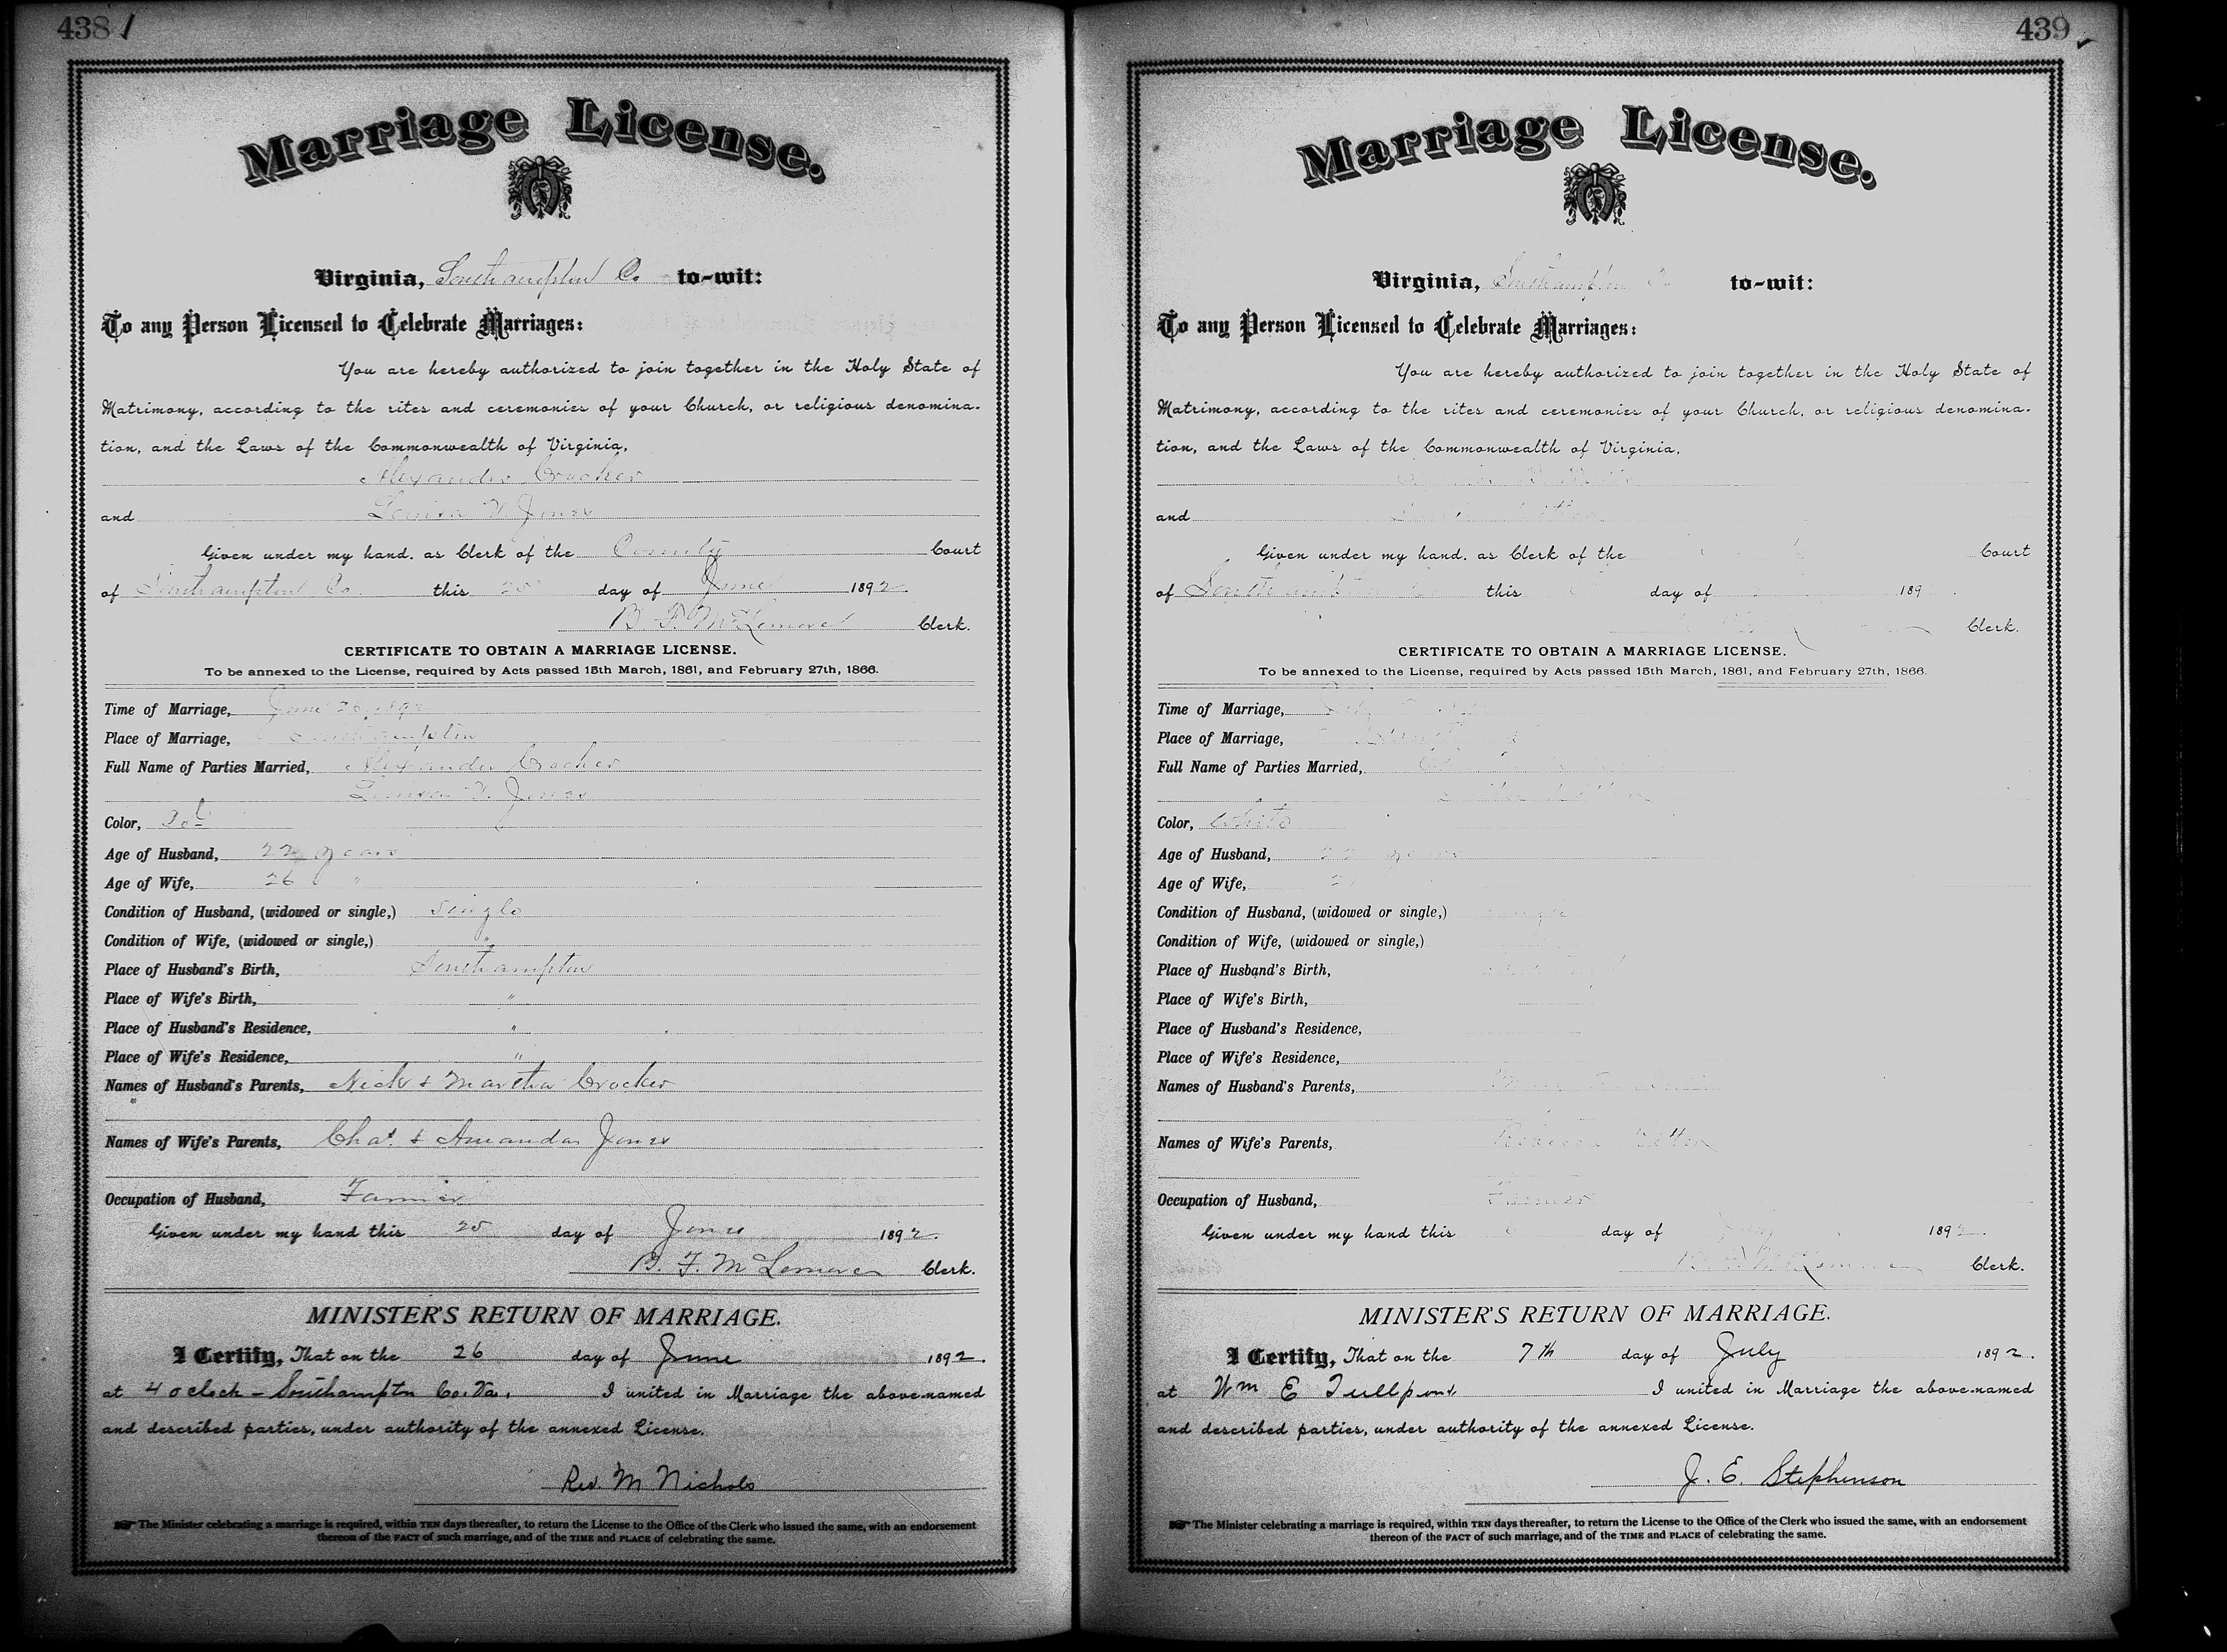 438
Marriage License.
Virginia, Southampton Co to-wit:
To any Person Licensed to Celebrate Marriages:
You are hereby authorized to join together in the Holy State of
Matrimony, according to the rites and ceremonies of your Church, or religious denomina-
tion, and the Laws of the Commonwealth of Virginia,
Alexander Crocker
and Louisa V. Jones
Given under my hand, as Clerk of the County Court
of Southampton Co. this 25 day of June 1892.
B. F. McLemore Clerk.
CERTIFICATE TO OBTAIN A MARRIAGE LICENSE.
To be annexed to the License, required by Acts passed 15th March, 1861, and February 27th, 1866.
Time of Marriage, June 26, 1892
Place of Marriage, Southampton
Full Name of Parties Married, Alexander Crocker
Louisa V. Jones
Color, Col
Age of Husband, 22 years
Age of Wife, 26 "
Condition of Husband, (widowed or single,) Single
Condition of Wife, (widowed or single,) "
Place of Husband's Birth, Southampton
Place of Wife's Birth, "
Place of Husband's Residence, "
Place of Wife's Residence, "
Names of Husband's Parents, Nick & Martha Crocker
Names of Wife's Parents, Chas. & Amanda Jones
Occupation of Husband, Farmer
Given under my hand this 25 day of June 1892.
B. F. McLemore Clerk.
MINISTER'S RETURN OF MARRIAGE.
I Certify, That on the 26 day of June 1892.
at 4 oclock - Southampton Co. Va. I united in Marriage the above-named
and described parties, under authority of the annexed License.
Rev. M Nichols
The Minister celebrating a marriage is required, within TEN days thereafter, to return the License to the Office of the Clerk who issued the same, with an endorsement
thereon of the FACT of such marriage, and of the TIME and PLACE of celebrating the same.
439
Marriage License.
Virginia, Southampton Co to-wit:
To any Person Licensed to Celebrate Marriages:
You are hereby authorized to join together in the Holy State of
Matrimony, according to the rites and ceremonies of your Church, or religious denomina-
tion, and the Laws of the Commonwealth of Virginia,
and
Given under my hand, as Clerk of the Court
of Southampton this day of 189
Clerk.
CERTIFICATE TO OBTAIN A MARRIAGE LICENSE.
To be annexed to the License, required by Acts passed 15th March, 1861, and February 27th, 1866.
Time of Marriage,
Place of Marriage,
Full Name of Parties Married,
Color, White
Age of Husband, years
Age of Wife,
Condition of Husband, (widowed or single,) Single
Condition of Wife, (widowed or single,)
Place of Husband's Birth,
Place of Wife's Birth,
Place of Husband's Residence,
Place of Wife's Residence,
Names of Husband's Parents,
Names of Wife's Parents,
Occupation of Husband, Farmer
Given under my hand this day of July 1892.
B. F. McLemore Clerk.
MINISTER'S RETURN OF MARRIAGE.
I Certify, That on the 7th day of July 1892.
at Wm E I united in Marriage the above-named
and described parties, under authority of the annexed License.
J. E. Stephenson
The Minister celebrating a marriage is required, within TEN days thereafter, to return the License to the Office of the Clerk who issued the same, with an endorsement
thereon of the FACT of such marriage, and of the TIME and PLACE of celebrating the same.